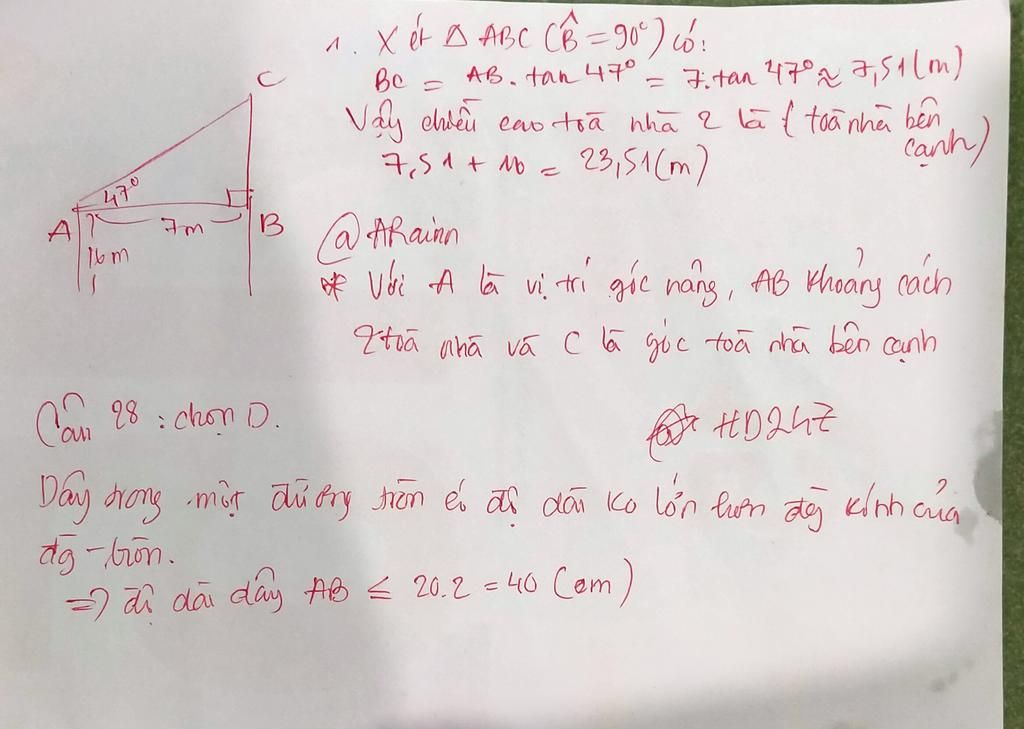 1. Xét Δ ABC (B̂ = 90°) có:
BC = AB. tan 47° = 7. tan 47° ≈ 7,51 (m)
Vậy chiều cao toà nhà 2 là (toà nhà bên cạnh)
7,51 + 16 = 23,51 (m)
C
47°
A
7m
B
16m
@ARainn
* Với A là vị trí góc nâng, AB khoảng cách
2 toà nhà và C là góc toà nhà bên cạnh
Câu 28 : chọn D.
HD247
Dây trong một đường tròn có độ dài ko lớn hơn đg kính của
đg-tròn.
=> độ dài dây AB ≤ 20.2 = 40 (cm)